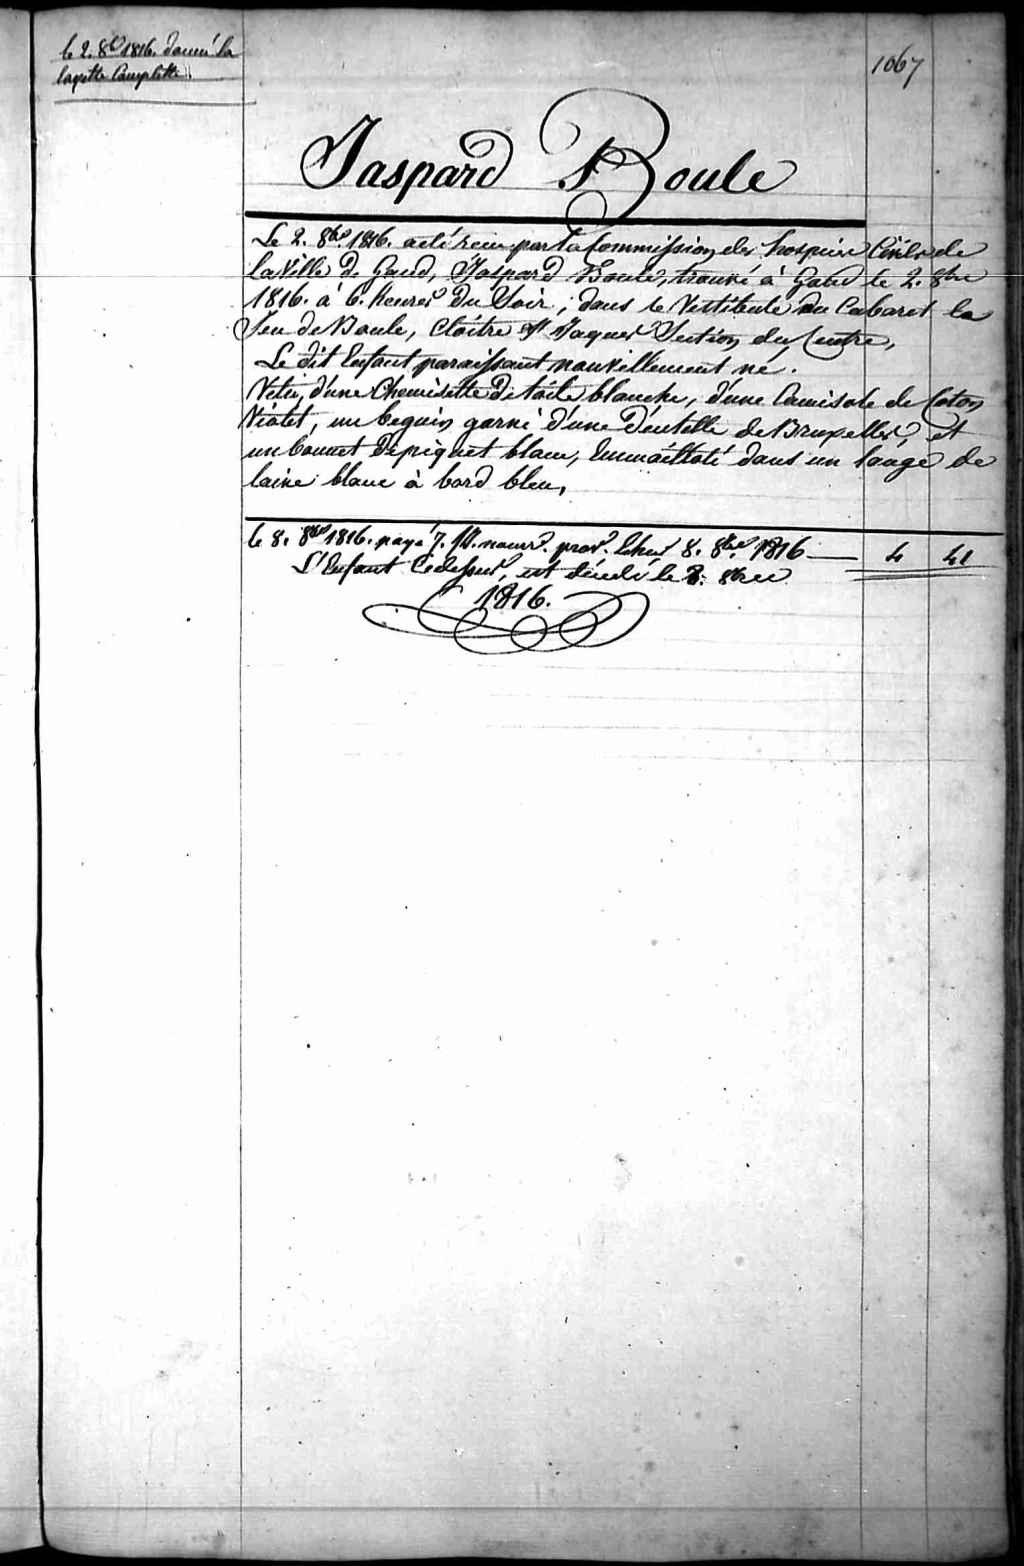 le 2. 8bre 1816. donné la
layette Complette.
1067
Jaspard Boule
Le 2. 8bre 1816. a été reçu par la Commission des hospices Civils de
la Ville de Gand, Jaspard Boule, trouvé à Gand le 2. 8bre
1816. à 6. heures du Soir, dans le Vestibule du Cabaret la
Jeu de Boule, Cloître St Jaques Section du Centre,
Le dit Enfant paraissant nouvellement né.
Vetu, d'une Chemisette de toile blanche, d'une Camisole de Coton
Violet, un beguin garni d'une Dentelle de Bruxelles, et
un bonnet de piquet blanc, Emmailloté dans un lange de
laine blanc à bord bleu,
le 8. 8bre 1816. payé 7. nourr. prov. 8. 8bre 1816 — 4 41
L'Enfant Cidessus, est décédé le 8. 8bre
1816.